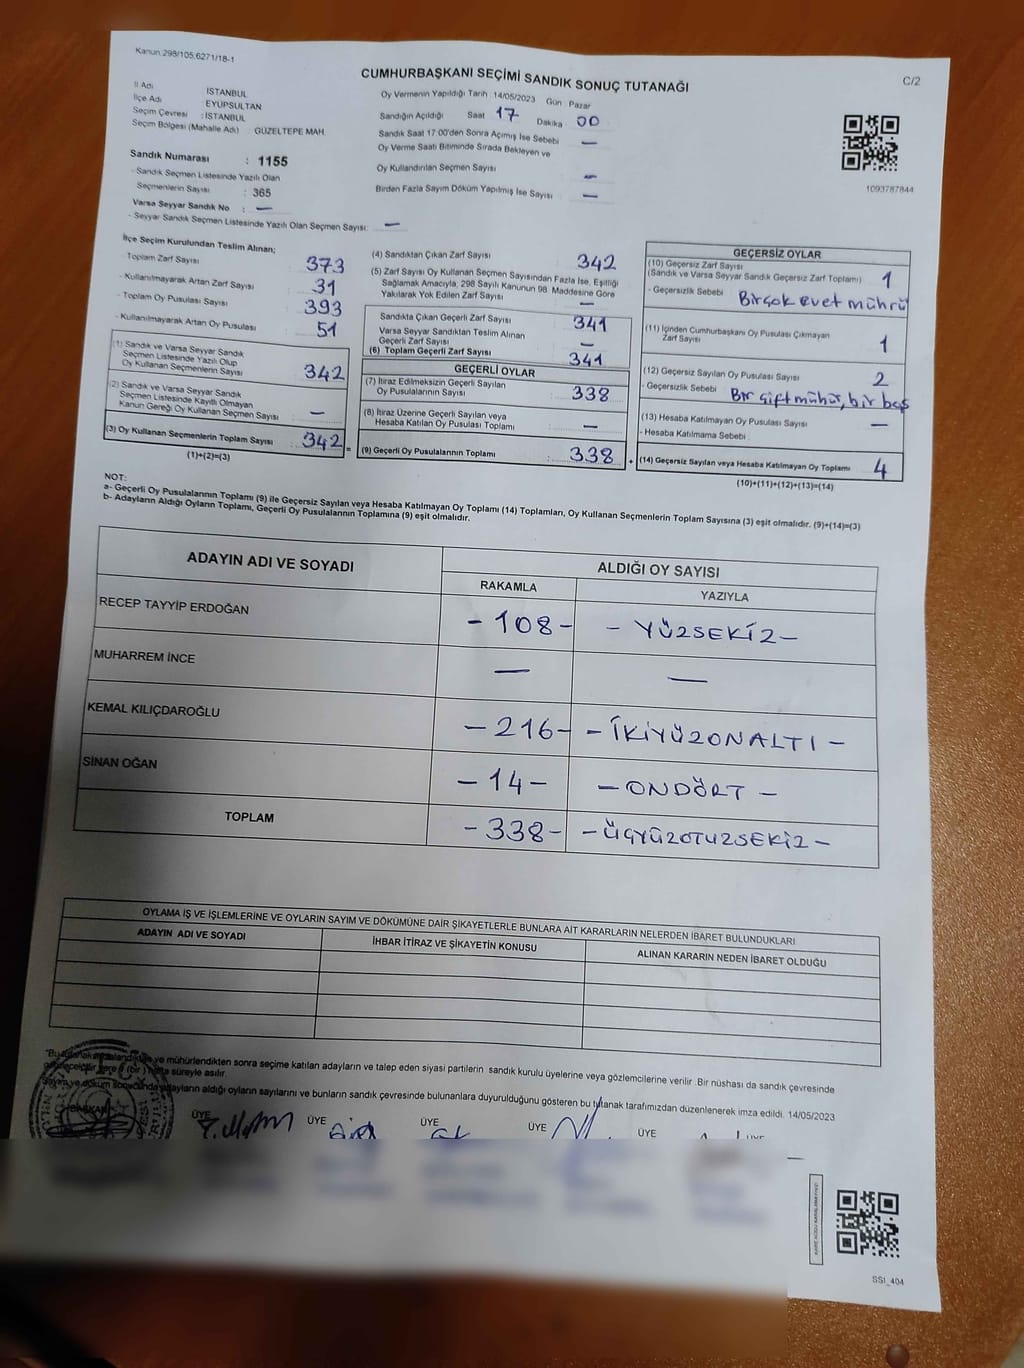 Kanun 298/105,6271/18-1
CUMHURBAŞKANI SEÇİMİ SANDIK SONUÇ TUTANAĞI
C/2
İl Adı İSTANBUL
İlçe Adı EYÜPSULTAN
Seçim Çevresi : İSTANBUL
Seçim Bölgesi (Mahalle Adı) : GÜZELTEPE MAH.
Sandık Numarası : 1155
- Sandık Seçmen Listesinde Yazılı Olan
Seçmenlerin Sayısı : 365
Varsa Seyyar Sandık No : —
- Seyyar Sandık Seçmen Listesinde Yazılı Olan Seçmen Sayısı: —
Oy Vermenin Yapıldığı Tarih : 14/05/2023 Gün Pazar
Sandığın Açıldığı Saat 17 Dakika 00
Sandık Saat 17:00'den Sonra Açımış İse Sebebi —
Oy Verme Saati Bitiminde Sırada Bekleyen ve
Oy Kullandırılan Seçmen Sayısı —
Birden Fazla Sayım Döküm Yapılmış İse Sayısı : —
1093787844
İlçe Seçim Kurulundan Teslim Alınan;
- Toplam Zarf Sayısı 373
- Kullanılmayarak Artan Zarf Sayısı 31
- Toplam Oy Pusulası Sayısı 393
- Kullanılmayarak Artan Oy Pusulası 51
(1) Sandık ve Varsa Seyyar Sandık
Seçmen Listesinde Yazılı Olup
Oy Kullanan Seçmenlerin Sayısı 342
(2) Sandık ve Varsa Seyyar Sandık
Seçmen Listesinde Kayıtlı Olmayan
Kanun Gereği Oy Kullanan Seçmen Sayısı —
(3) Oy Kullanan Seçmenlerin Toplam Sayısı : 342 =
(1)+(2)=(3)
(4) Sandıktan Çıkan Zarf Sayısı 342
(5) Zarf Sayısı Oy Kullanan Seçmen Sayısından Fazla İse, Eşitliği
Sağlamak Amacıyla, 298 Sayılı Kanunun 98. Maddesine Göre
Yakılarak Yok Edilen Zarf Sayısı —
Sandıkta Çıkan Geçerli Zarf Sayısı 341
Varsa Seyyar Sandıktan Teslim Alınan
Geçerli Zarf Sayısı —
(6) Toplam Geçerli Zarf Sayısı 341
GEÇERLİ OYLAR
(7) İtiraz Edilmeksizin Geçerli Sayılan
Oy Pusulalarının Sayısı 338
(8) İtiraz Üzerine Geçerli Sayılan veya
Hesaba Katılan Oy Pusulası Toplamı —
(9) Geçerli Oy Pusulalarının Toplamı : 338 +
GEÇERSİZ OYLAR
(10) Geçersiz Zarf Sayısı
(Sandık ve Varsa Seyyar Sandık Geçersiz Zarf Toplamı) 1
- Geçersizlik Sebebi Birçok evet mührü
(11) İçinden Cumhurbaşkanı Oy Pusulası Çıkmayan
Zarf Sayısı 1
(12) Geçersiz Sayılan Oy Pusulası Sayısı 2
- Geçersizlik Sebebi Bir çift mühür, bir boş
(13) Hesaba Katılmayan Oy Pusulası Sayısı —
- Hesaba Katılmama Sebebi
(14) Geçersiz Sayılan veya Hesaba Katılmayan Oy Toplamı 4
(10)+(11)+(12)+(13)=(14)
NOT:
a- Geçerli Oy Pusulalarının Toplamı (9) ile Geçersiz Sayılan veya Hesaba Katılmayan Oy Toplamı (14) Toplamları, Oy Kullanan Seçmenlerin Toplam Sayısına (3) eşit olmalıdır. (9)+(14)=(3)
b- Adayların Aldığı Oyların Toplamı, Geçerli Oy Pusulalarının Toplamına (9) eşit olmalıdır.
ADAYIN ADI VE SOYADI ALDIĞI OY SAYISI
RAKAMLA YAZIYLA
RECEP TAYYİP ERDOĞAN - 108 - - YÜZSEKİZ -
MUHARREM İNCE — —
KEMAL KILIÇDAROĞLU - 216 - - İKİYÜZONALTI -
SİNAN OĞAN - 14 - - ONDÖRT -
TOPLAM - 338 - - ÜÇYÜZOTUZSEKİZ -
OYLAMA İŞ VE İŞLEMLERİNE VE OYLARIN SAYIM VE DÖKÜMÜNE DAİR ŞİKAYETLERLE BUNLARA AİT KARARLARIN NELERDEN İBARET BULUNDUKLARI
ADAYIN ADI VE SOYADI İHBAR İTİRAZ VE ŞİKAYETİN KONUSU ALINAN KARARIN NEDEN İBARET OLDUĞU
ve mühürlendikten sonra seçime katılan adayların ve talep eden siyasi partilerin sandık kurulu üyelerine veya gözlemcilerine verilir. Bir nüshası da sandık çevresinde
süreyle asılır.
adayların aldığı oyların sayılarını ve bunların sandık çevresinde bulunanlara duyurulduğunu gösteren bu tutanak tarafımızdan düzenlenerek imza edildi. 14/05/2023
BAŞKAN ÜYE ÜYE ÜYE ÜYE ÜYE ÜYE
SSİ_404